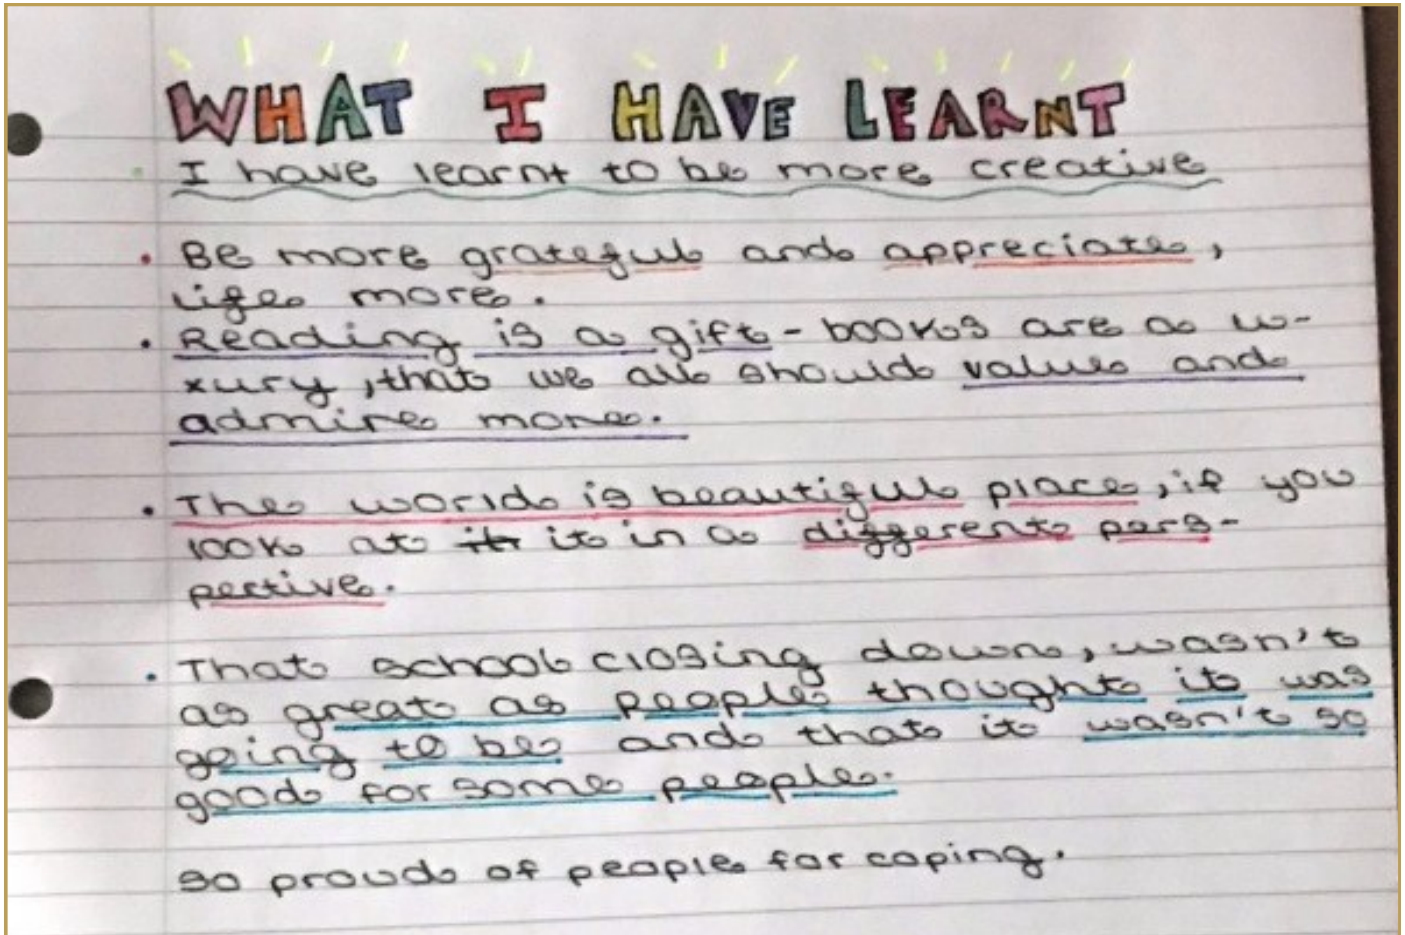 WHAT I HAVE LEARNT
I have learnt to be more creative
• Be more grateful and appreciate,
life more.
• Reading is a gift - books are a lu-
xury, that we all should value and
admire more.
• The world is beautiful place, if you
look at it it in a different pers-
pective.
• That school closing down, wasn't
as great as people thought it was
going to be and that it wasn't so
good for some people.
so proud of people for coping.